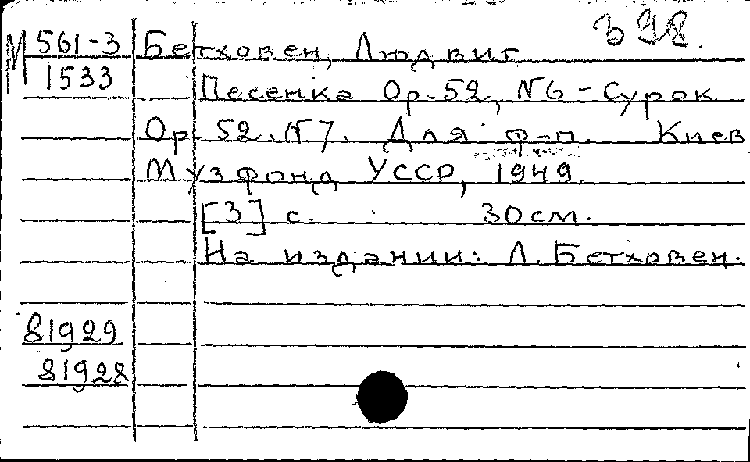 398.
М 561-3 Бетховен, Людвиг
1533 Песенка Ор. 52, №6 - Сурок
Ор. 52. №7. Для ф-п. Киев
Музфонд УССР, 1949.
[3] с. 30см.
На издании: Л. Бетховен.
81929
81928